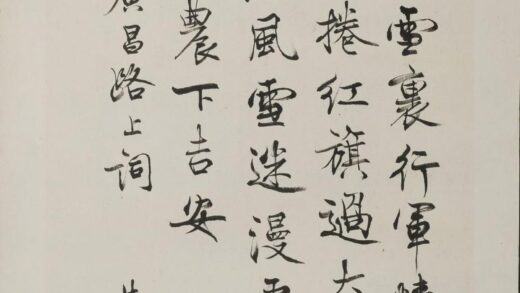 雪裏行軍情
捲紅旗過大
風雪迷漫
農下吉安
廣昌路上詞